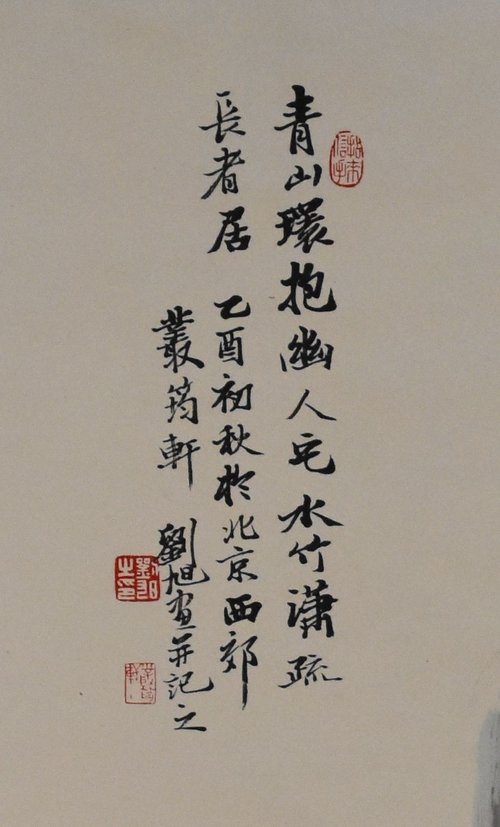 青山環抱幽人宅水竹瀟疏
長者居　乙酉初秋於北京西郊
叢筠軒　劉旭畫并記之